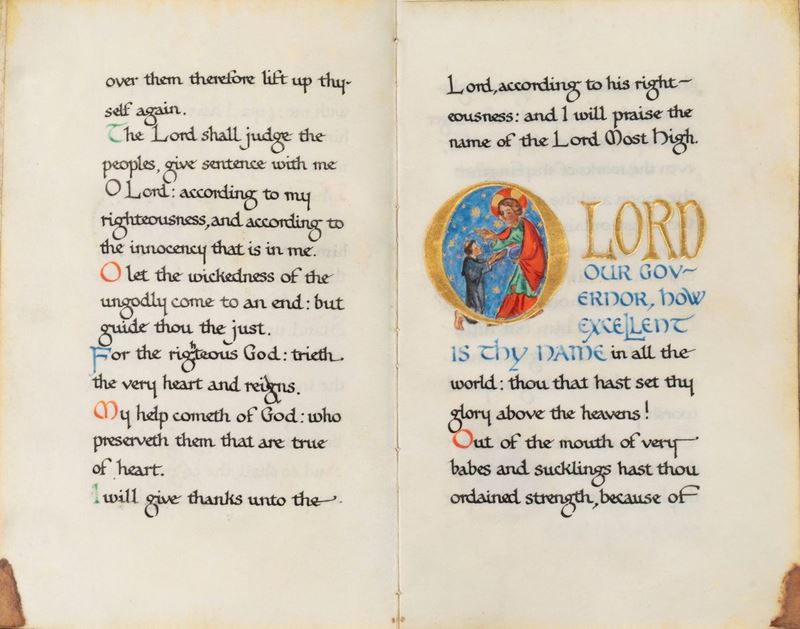 over them therefore lift up thy-
self again.
The Lord shall judge the
peoples, give sentence with me
O Lord: according to my
righteousness, and according to
the innocency that is in me.
O let the wickedness of the
ungodly come to an end: but
guide thou the just.
For the righteous God: trieth
the very heart and reigns.
My help cometh of God: who
preserveth them that are true
of heart.
I will give thanks unto the
Lord, according to his right~
eousness: and I will praise the
name of the Lord Most High.
O LORD
OUR GOV~
ERNOR, hOW
EXCELLENT
IS Thy NAME in all the
world: thou that hast set thy
glory above the heavens!
Out of the mouth of very
babes and sucklings hast thou
ordained strength, because of